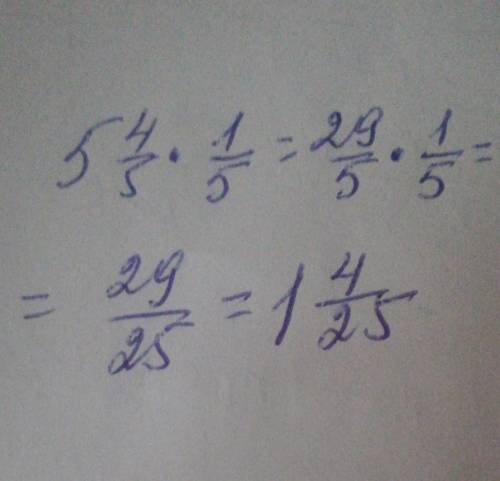 5 4/5 · 1/5 = 29/5 · 1/5 =
= 29/25 = 1 4/25